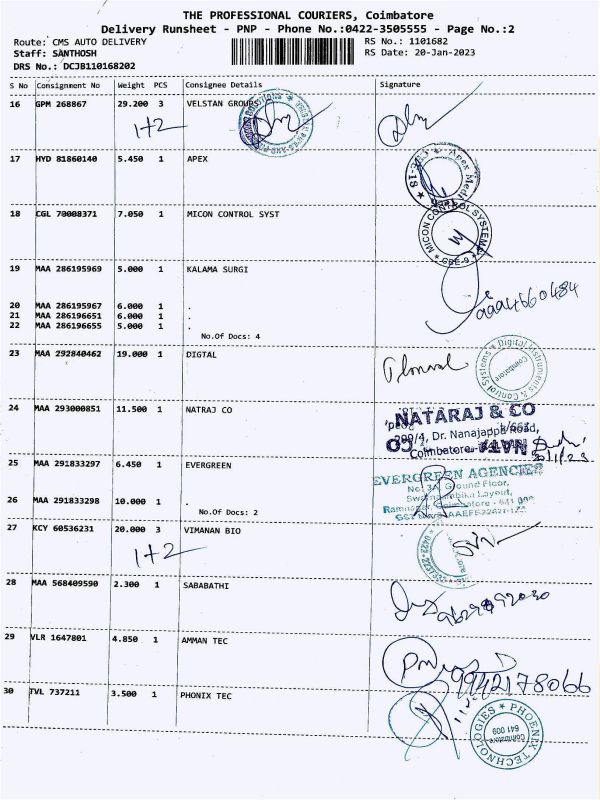 THE PROFESSIONAL COURIERS, Coimbatore
Delivery Runsheet - PNP - Phone No.:0422-3505555 - Page No.:2
Route: CMS AUTO DELIVERY RS No.: 1101682
Staff: SANTHOSH RS Date: 20-Jan-2023
DRS No.: DCJB110168202
S No Consignment No Weight PCS Consignee Details Signature
16 GPM 268867 29.200 3 VELSTAN GROUPS
1+2
17 HYD 81860140 5.450 1 APEX
Apex Medi
18 CGL 70008371 7.050 1 MICON CONTROL SYST
MICON CONTROL SYSTEMS
CBE-9
19 MAA 286195969 5.000 1 KALAMA SURGI
20 MAA 286195967 6.000 1 .
21 MAA 286196651 6.000 1 .
22 MAA 286196655 5.000 1 .
No.Of Docs: 4
23 MAA 292840462 19.000 1 DIGTAL
Digital Instruments & Control Systems
Coimbatore
24 MAA 293000851 11.500 1 NATRAJ CO
NATARAJ & CO
209/4, Dr. Nanajappa Road,
Coimbatore
20/1/23
25 MAA 291833297 6.450 1 EVERGREEN
EVERGREEN AGENCIES
No: 3A, Ground Floor,
Swarnambika Layout,
Ramnagar, Coimbatore - 641 009
26 MAA 291833298 10.000 1 .
No.Of Docs: 2
27 KCY 60536231 20.000 3 VIMANAN BIO
1+2
28 MAA 568409590 2.300 1 SABABATHI
29 VLR 1647801 4.850 1 AMMAN TEC
9942178066
30 TVL 737211 3.500 1 PHONIX TEC
PHOENIX TECHNOLOGIES
Coimbatore
641 009